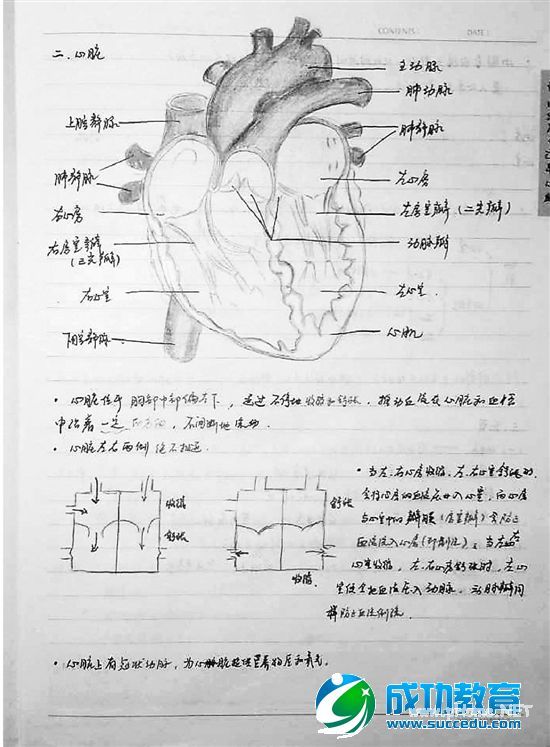 CONTENTS:
DATE:
二.心脏
主动脉
肺动脉
上腔静脉
肺静脉
肺静脉
左心房
右心房
左房室瓣(二尖瓣)
右房室瓣
(三尖瓣)
动脉瓣
右心室
左心室
下腔静脉
心肌
·心脏位于胸部中部偏左下,通过不停地收缩和舒张,推动血液在心脏和血管
中沿着一定的方向,不间断地流动.
·心脏左右两侧绝不相通.
收缩
舒张
舒张
收缩
·当左.右心房收缩,左.右心室舒张时,
会将心房的血液压入心室,而心房
与心室中的瓣膜(房室瓣)会防止
血液流入心房(即倒流);当左右
心室收缩,左.右心房舒张时,左心
室便会把血液压入动脉,动脉瓣同
样防止血液倒流.
·心脏上有冠状动脉,为心脏提供营养物质和氧气.
成功教育
www.succedu.com